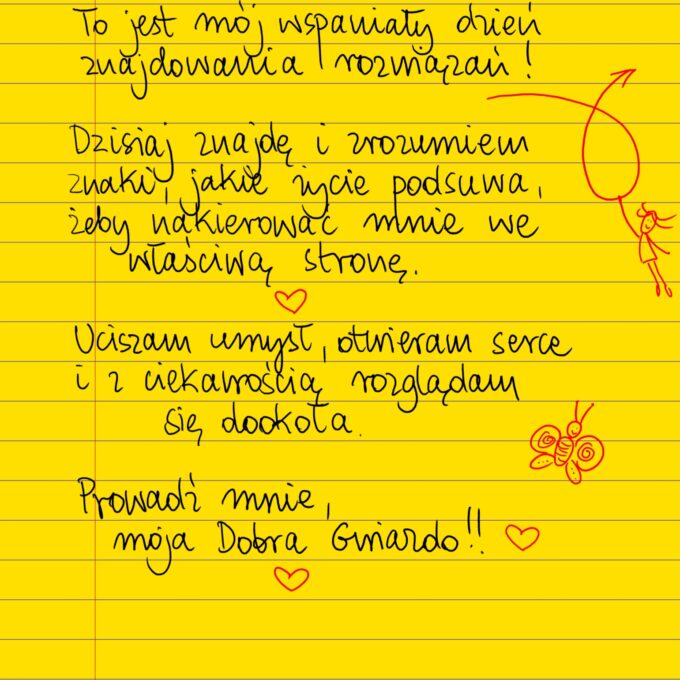 To jest mój wspaniały dzień
znajdowania rozwiązań!
Dzisiaj znajdę i zrozumiem
znaki, jakie życie podsuwa,
żeby nakierować mnie we
właściwą stronę.
Uciszam umysł, otwieram serce
i z ciekawością rozglądam
się dookoła.
Prowadź mnie,
moja Dobra Gwiazdo!!